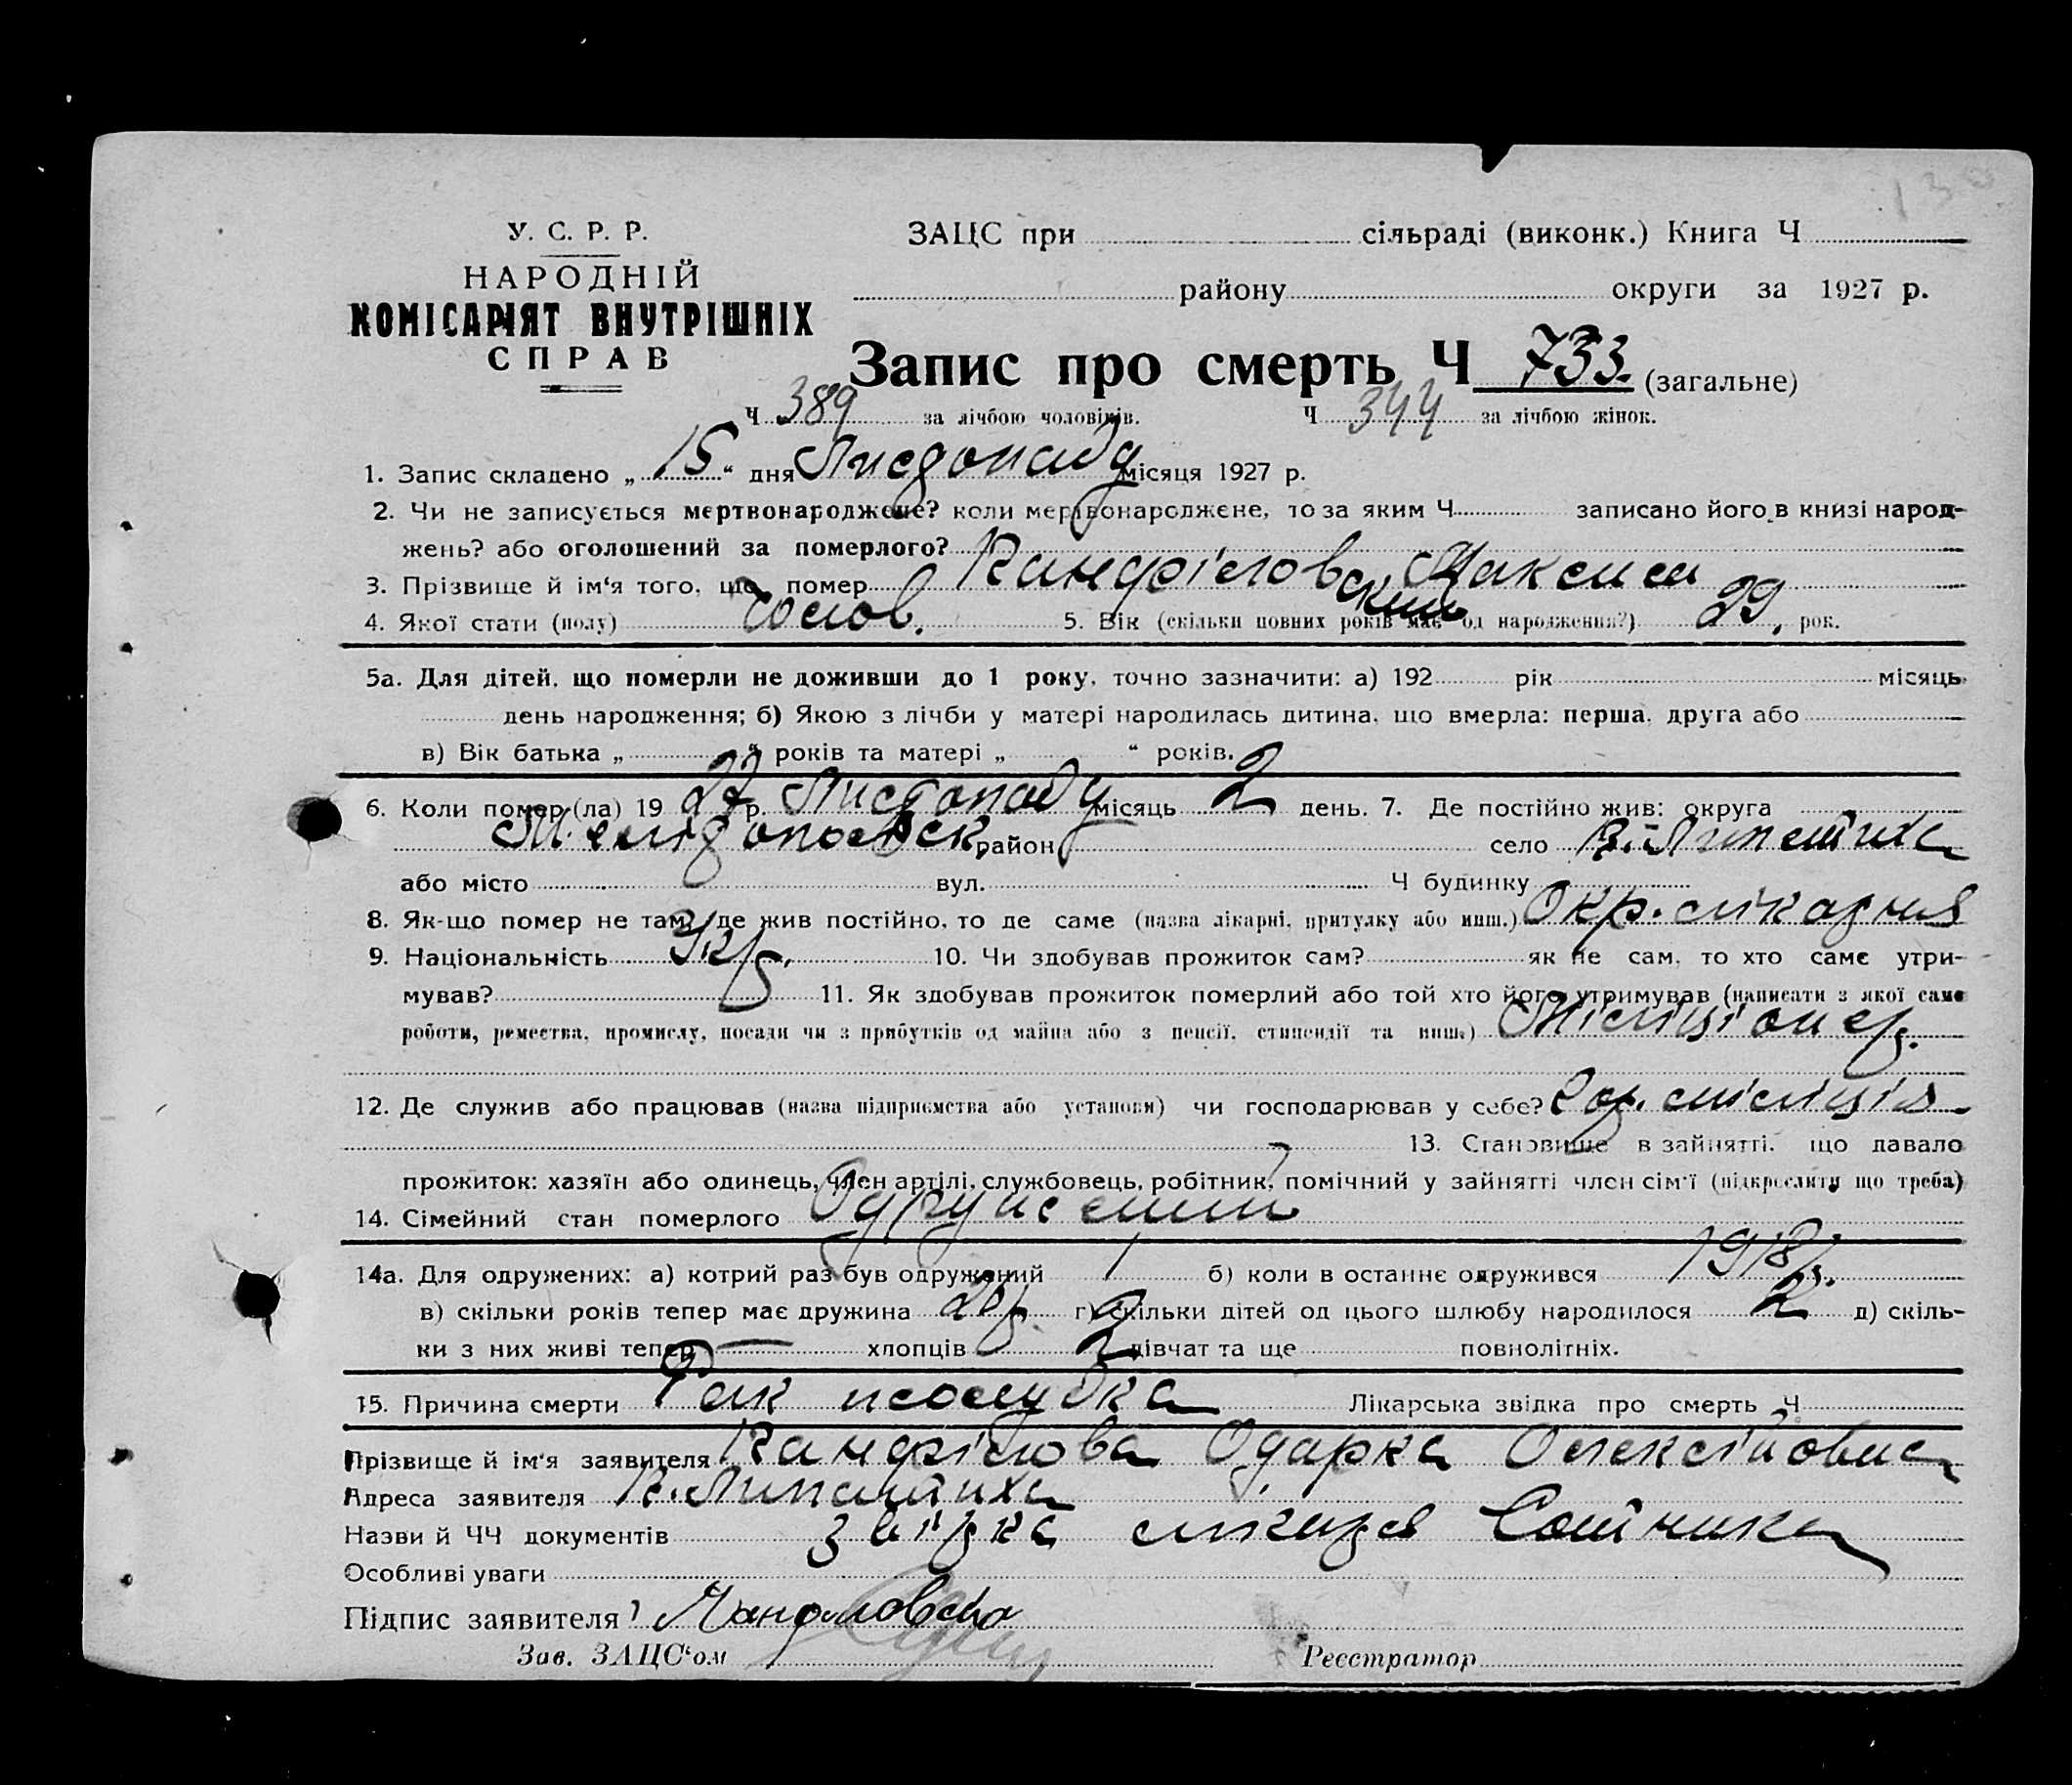 У. С. Р. Р.
НАРОДНІЙ
КОМІСАРІЯТ ВНУТРІШНІХ
СПРАВ
ЗАЦС при сільраді (виконк.) Книга Ч
району округи за 1927 р.
Запис про смерть Ч 733. (загальне)
Ч 389 за лічбою чоловіків. Ч 344 за лічбою жінок.
1. Запис складено „ 15 “ дня Листопаду місяця 1927 р.
2. Чи не записується мертвонароджене? коли мертвонароджене, то за яким Ч записано його в книзі народ-
жень? або оголошений за померлого?
3. Прізвище й ім‘я того, що помер Канфіловський Максим
4. Якої стати (полу) чолов. 5. Вік (скільки повних років має од народження?) 29, рок.
5а. Для дітей, що померли не доживши до 1 року, точно зазначити: а) 192 рік місяць
день народження; б) Якою з лічби у матері народилась дитина, що вмерла: перша, друга або
в) Вік батька „ “ років та матері „ “ років.
6. Коли помер (ла) 19 27 р. Листопаду місяць 2 день. 7. Де постійно жив: округа
Мелітопольск, район село В.-Липетиха
або місто вул. Ч будинку
8. Як-що помер не там, де жив постійно, то де саме (назва лікарні, притулку або инш.) Окр. лікарня
9. Національність Укр. 10. Чи здобував прожиток сам? як не сам, то хто саме утри-
мував? 11. Як здобував прожиток померлий або той хто його утримував (написати з якої саме
роботи, ремества, промислу, посади чи з прибутків од майна або з пенсії, стипендії та инш.) Міліціонер.
12. Де служив або працював (назва підприємства або установи) чи господарював у себе? Рай. міліція
13. Становище в зайнятті, що давало
прожиток: хазяїн або одинець, член артілі, службовець, робітник, помічний у зайнятті член сім‘ї (підкреслити що треба)
14. Сімейний стан померлого Одружений
14а. Для одружених: а) котрий раз був одружений 1 б) коли в останнє одружився 1918 р.
в) скільки років тепер має дружина г) скільки дітей од цього шлюбу народилося 2 д) скіль-
ки з них живі тепер — хлопців 2 дівчат та ще повнолітніх.
15. Причина смерти Рак шолудка Лікарська звідка про смерть Ч
Прізвище й ім‘я заявителя Канфілова Одарка Олексійовна
Адреса заявителя В. Липатиха
Назви й ЧЧ документів звідка лікаря Сотника
Особливі уваги
Підпис заявителя
Зав. ЗАЦС‘ом Реєстратор